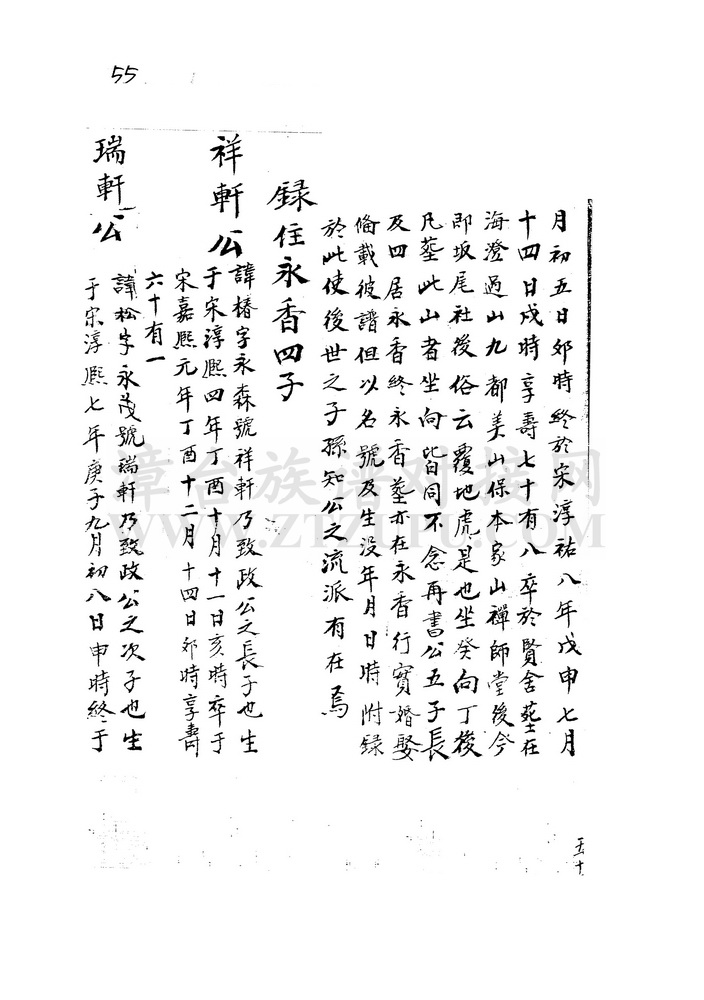 55
月初五日卯時終於宋淳祐八年戊申七月
十四日戌時享壽七十有八卒於賢舍塟在
海澄過山九都美山保本家山禪師堂後今
即坂尾社後俗云覆地虎是也坐癸向丁後
凡塟此山者坐向皆同不念再書公五子長
及四居永香終永香塟亦在永香行實婚娶
備載彼譜但以名號及生没年月日時附録
於此使後世之子孫知公之流派有在焉
録住永香四子
祥軒公
諱椿字永森號祥軒乃致政公之長子也生
于宋淳熙四年丁酉十月十一日亥時卒于
宋嘉熙元年丁酉十二月十四日卯時享壽
六十有一
瑞軒公
諱松字永茂號瑞軒乃致政公之次子也生
于宋淳熙七年庚子九月初八日申時終于
五十
漳台族谱对接网
WWW.ZTZUPU.COM